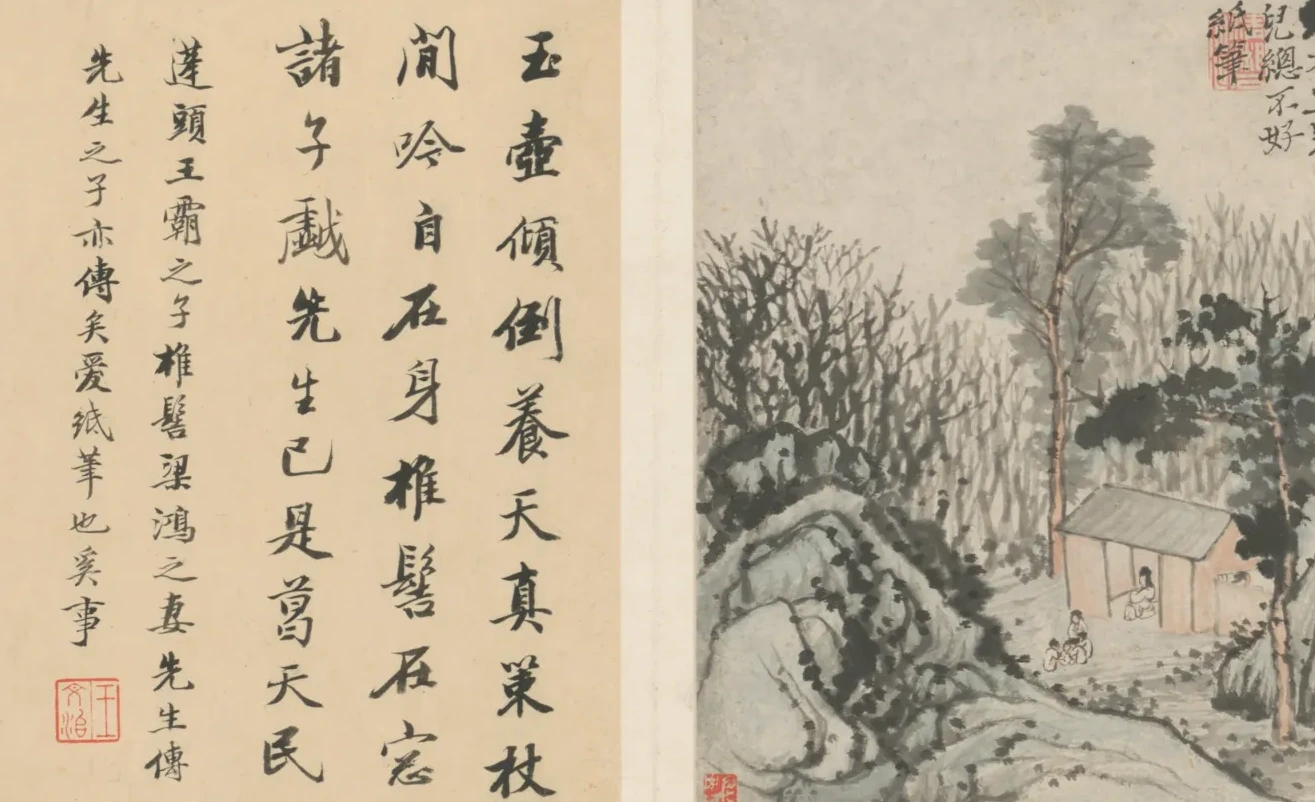 兒總不好
紙筆
玉壺傾倒養天真策杖
閒吟自在身椎髻在窓
諸子戱先生已是葛天民
蓬頭王霸之子椎髻梁鴻之妻先生傳
先生之子亦傳矣愛紙筆也奚事
王文治